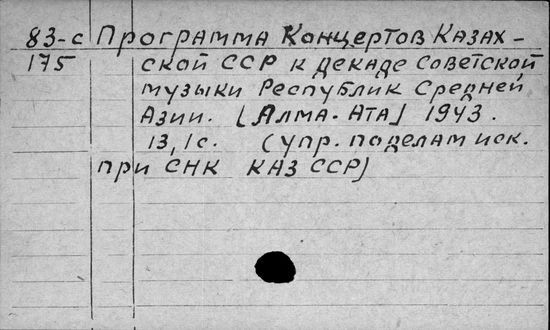 83-с Программа Концертов Казах-
175 ской ССР к декаде Советской
музыки Республик Средней
Азии. [Алма-Ата] 1943.
13,1с. (упр. по делам иск.
при СНК КАЗ ССР)